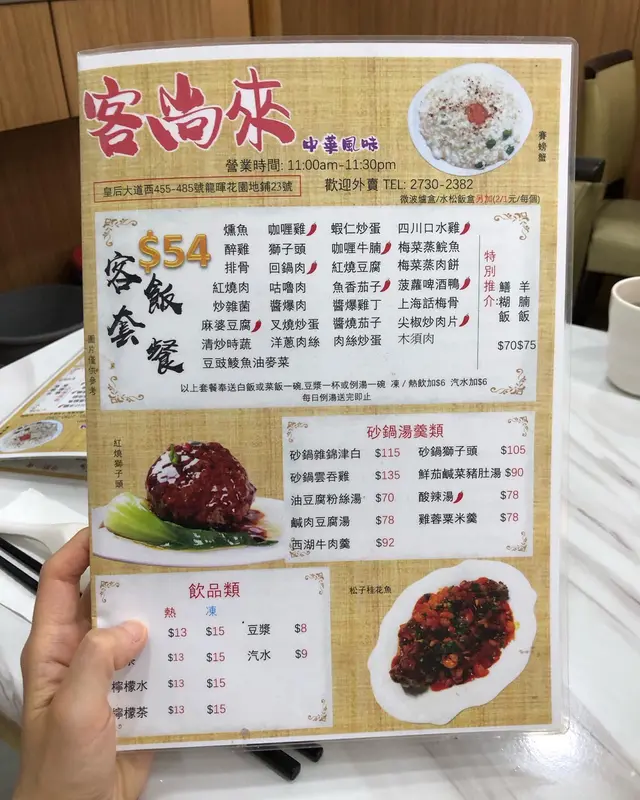 客尚來
中華風味
賽螃蟹
營業時間: 11:00am-11:30pm
皇后大道西455-485號龍暉花園地鋪23號
歡迎外賣 TEL: 2730-2382
微波爐盒/水松飯盒另加(2/1元/每個)
$54
客飯套餐
燻魚 咖喱雞 蝦仁炒蛋 四川口水雞
醉雞 獅子頭 咖喱牛腩 梅菜蒸鯇魚
排骨 回鍋肉 紅燒豆腐 梅菜蒸肉餅
紅燒肉 咕嚕肉 魚香茄子 菠蘿啤酒鴨
炒雜菌 醬爆肉 醬爆雞丁 上海話梅骨
麻婆豆腐 叉燒炒蛋 醬燒茄子 尖椒炒肉片
清炒時蔬 洋蔥肉絲 肉絲炒蛋 木須肉
豆豉鯪魚油麥菜
特別推介:
鱔糊飯 $70
羊腩飯 $75
以上套餐奉送白飯或菜飯一碗.豆漿一杯或例湯一碗 凍 / 熱飲加$6 汽水加$6
每日例湯送完即止
圖片僅供參考
紅燒獅子頭
砂鍋湯羹類
砂鍋雜錦津白 $115 砂鍋獅子頭 $105
砂鍋雲吞雞 $135 鮮茄鹹菜豬肚湯 $90
油豆腐粉絲湯 $70 酸辣湯 $78
鹹肉豆腐湯 $78 雞蓉粟米羹 $78
西湖牛肉羹 $92
飲品類
熱 凍
$13 $15 豆漿 $8
$13 $15 汽水 $9
檸檬水 $13 $15
檸檬茶 $13 $15
松子桂花魚